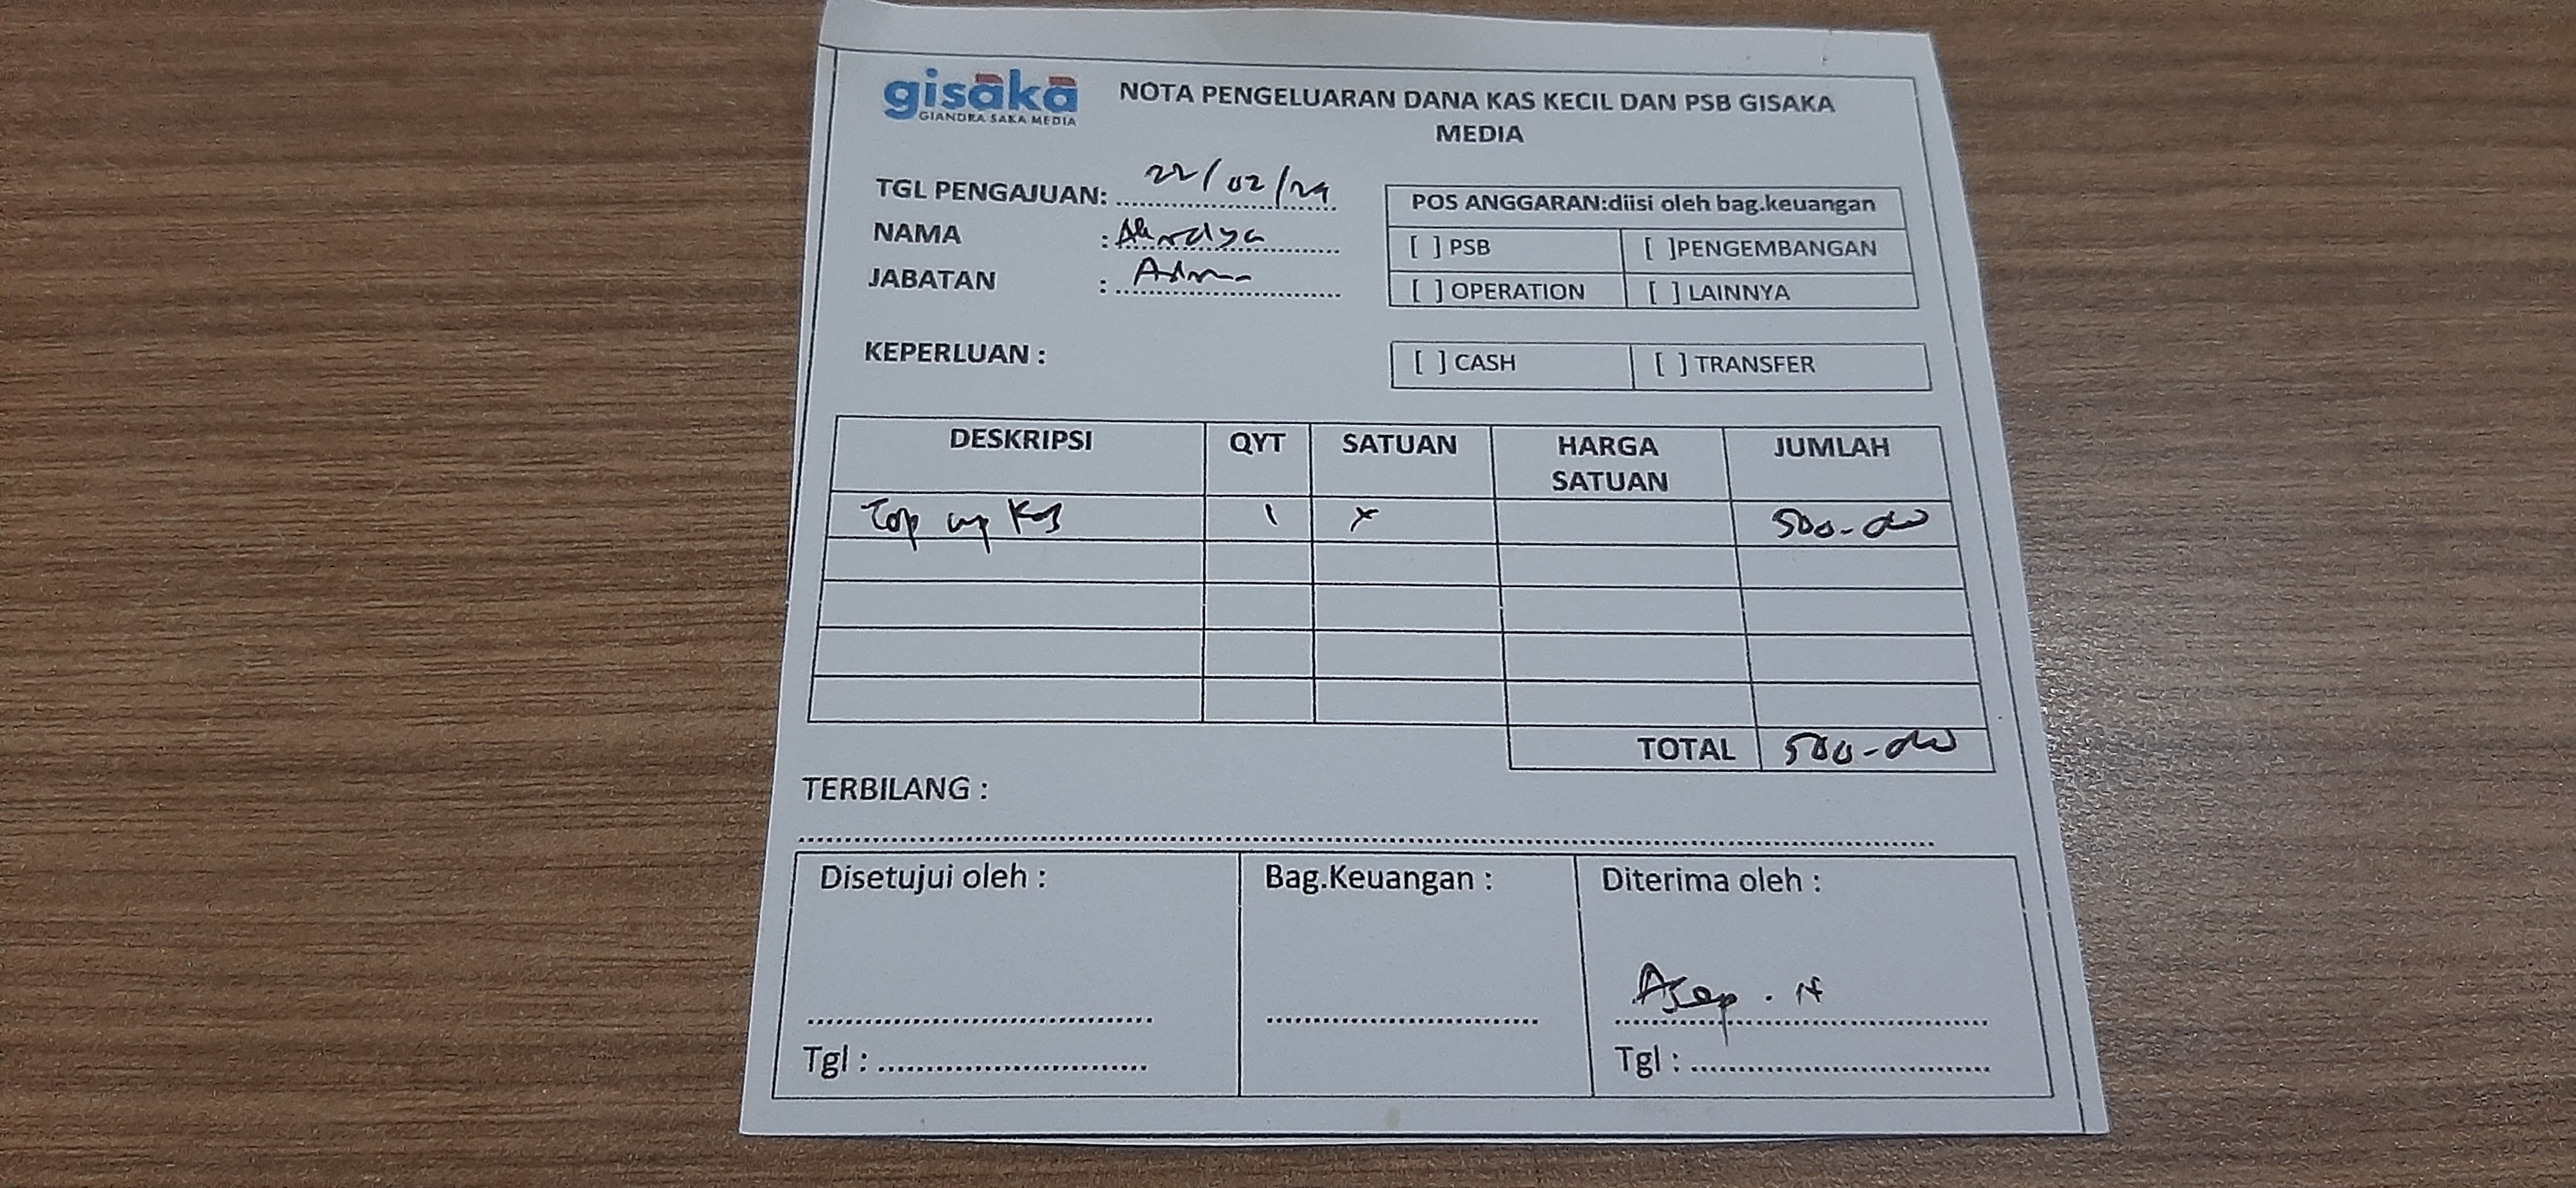 gisaka
GIANDRA SAKA MEDIA
NOTA PENGELUARAN DANA KAS KECIL DAN PSB GISAKA
MEDIA
TGL PENGAJUAN: 22/02/24
NAMA :
JABATAN : Admin
POS ANGGARAN:diisi oleh bag.keuangan
[ ] PSB [ ]PENGEMBANGAN
[ ] OPERATION [ ] LAINNYA
KEPERLUAN :
[ ] CASH [ ] TRANSFER
DESKRIPSI QYT SATUAN HARGA SATUAN JUMLAH
Top up Kas 1 x 500-000
TOTAL 500-000
TERBILANG :
Disetujui oleh : Bag.Keuangan : Diterima oleh :
Asep . N
Tgl : Tgl :